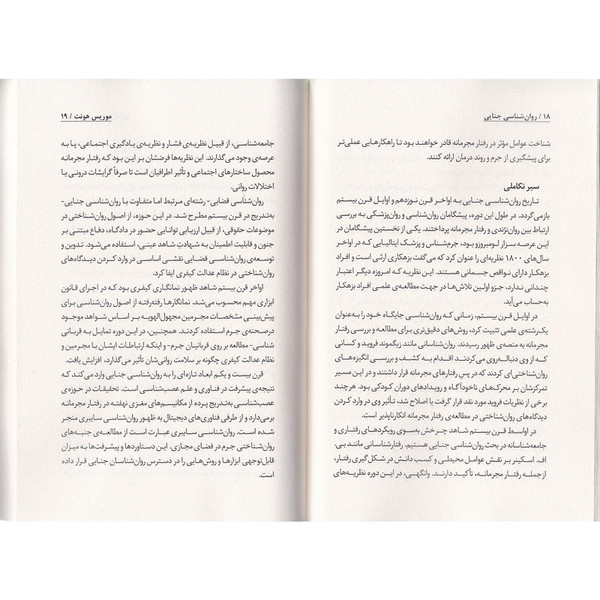 ۱۸ / روان‌شناسی جنایی
شناخت عوامل مؤثر در رفتار مجرمانه قادر خواهند بود تا راهکارهایی عملی‌تر
برای پیشگیری از جرم و روند درمان ارائه کنند.
سیر تکاملی
تاریخ روان‌شناسی جنایی به اواخر قرن نوزدهم و اوایل قرن بیستم
بازمی‌گردد. در طول این دوره، پیشگامان روان‌شناسی و روان‌پزشکی به بررسی
ارتباط بین روان‌نژندی و رفتار مجرمانه پرداختند. یکی از نخستین پیشگامان در
این عرصه سزار لومبروزو بود، جرم‌شناس و پزشک ایتالیایی که در اواخر
سال‌های ۱۸۰۰ نظریه‌ای را عنوان کرد که می‌گفت بزهکاری ارثی است و افراد
بزهکار دارای نواقص جسمانی هستند. این نظریه که امروزه دیگر اعتبار
چندانی ندارد، جزو اولین تلاش‌ها در جهت مطالعه‌ی علمی افراد بزهکار
به‌حساب می‌آید.
در اوایل قرن بیستم، زمانی که روان‌شناسی جایگاه خود را به‌عنوان
یک‌رشته‌ی علمی تثبیت کرد، روش‌های دقیق‌تری برای مطالعه و بررسی رفتار
مجرمانه به منصه‌ی ظهور رسیدند. روان‌شناسانی مانند زیگموند فروید و کسانی
که از وی دنباله‌روی می‌کردند اقدام به کشف و بررسی انگیزه‌های
روان‌شناختی‌ای کردند که در پس رفتارهای مجرمانه قرار داشتند و در این مسیر
تمرکزشان بر محرک‌های ناخودآگاه و رویدادهای دوران کودکی بود. هرچند
برخی از نظریات فروید مورد نقد قرار گرفت یا اصلاح شد، تأثیر وی در وارد کردن
دیدگاه‌های روان‌شناختی در مطالعه‌ی رفتار مجرمانه انکارناپذیر است.
در اواسط قرن بیستم شاهد چرخش به‌سوی رویکردهای رفتاری و
جامعه‌شناسانه در بحث روان‌شناسی جنایی هستیم. رفتارشناسانی مانند بی.
اف. اسکینر بر نقش عوامل محیطی و کسب دانش در شکل‌گیری رفتار،
ازجمله رفتار مجرمانه، تأکید دارند. وانگهی، در این دوره نظریه‌های
موریس هونت / ۱۹
جامعه‌شناسی، از قبیل نظریه‌ی فشار و نظریه‌ی یادگیری اجتماعی، پا به
عرصه‌ی وجود می‌گذارند. این نظریه‌ها فرضشان بر این بود که رفتار مجرمانه
محصول ساختارهای اجتماعی و تأثیر اطرافیان است تا صرفاً گرایشات درونی یا
اختلالات روانی.
روان‌شناسی قضایی- رشته‌ای مرتبط اما متفاوت با روان‌شناسی جنایی-
به‌تدریج در قرن بیستم مطرح شد. در این حوزه، از اصول روان‌شناختی در
موضوعات حقوقی، از قبیل ارزیابی توانایی حضور در دادگاه، دفاع مبتنی بر
جنون و قابلیت اطمینان به شهادتِ شاهد عینی، استفاده می‌شود. تدوین و
توسعه‌ی روان‌شناسی قضایی نقشی اساسی در وارد کردن دیدگاه‌های
روان‌شناختی در نظام عدالت کیفری ایفا کرد.
اواخر قرن بیستم شاهد ظهور نمایگری کیفری بود که در اجرای قانون
ابزاری مهم محسوب می‌شد. نمانگارها رفته‌رفته از اصول روان‌شناسی برای
پیش‌بینی مشخصات مجرمین مجهول‌الهویه بر اساس شواهد موجود
درصحنه‌ی جرم استفاده کردند. همچنین، در این دوره تمایل به قربانی
شناسی- مطالعه بر روی قربانیان جرم- و اینکه ارتباطات ایشان با مجرمین و
نظام عدالت کیفری چگونه بر سلامت روانی‌شان تأثیر می‌گذارد، افزایش یافت.
قرن بیست و یکم ابعاد تازه‌ای را به روان‌شناسی جنایی وارد می‌کند که
نتیجه‌ی پیشرفت در فناوری و علم عصب‌شناسی است. تحقیقات در حوزه‌ی
عصب‌شناسی به‌تدریج پرده از مکانیسم‌های مغزی نهفته در رفتار مجرمانه
برمی‌دارد و از طرفی فناوری‌های دیجیتال به ظهور روان‌شناسی سایبری منجر
شدند. روان‌شناسی سایبری عبارت است از مطالعه‌ی جنبه‌های
روان‌شناختی جرم در فضای مجازی. این دستاوردها و پیشرفت‌ها به میزان
قابل‌توجهی ابزارها و روش‌هایی را در دسترس روان‌شناسان جنایی قرار داده
است.